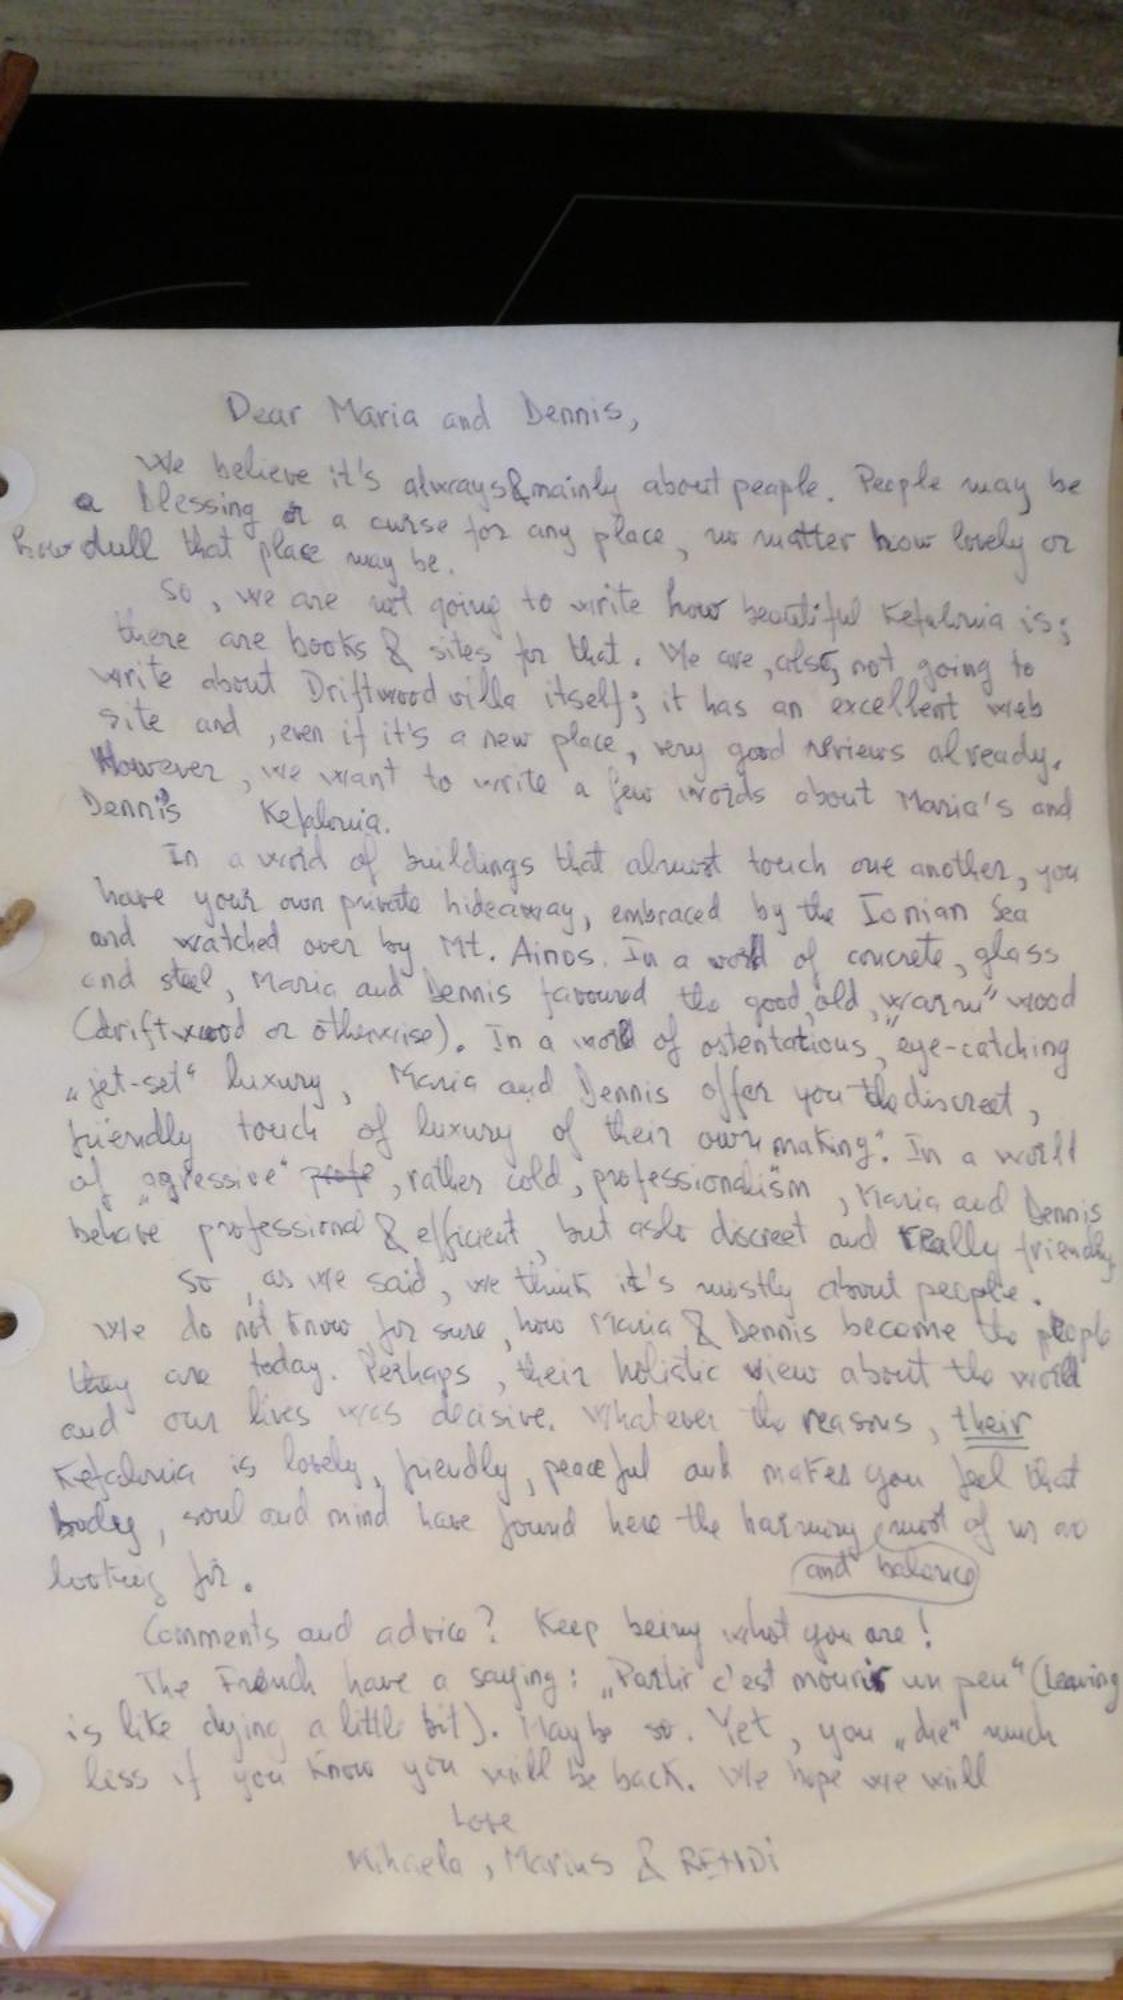 Dear Maria and Dennis,
We believe it's always & mainly about people. People may be
a blessing or a curse for any place, no matter how lovely or
how dull that place may be.
So, we are not going to write how beautiful Kefalonia is;
there are books & sites for that. We are, also, not going to
write about Driftwood villa itself; it has an excellent web
site and, even if it's a new place, very good reviews already.
However, we want to write a few words about Maria's and
Dennis Kefalonia.
In a world of buildings that almost touch one another, you
have your own private hideaway, embraced by the Ionian Sea
and watched over by Mt. Ainos. In a world of concrete, glass
and steel, Maria and Dennis favoured the good, old, „warm" wood
(driftwood or otherwise). In a world of ostentatious, eye-catching
„jet-set" luxury, Maria and Dennis offer you the discreet,
friendly touch of luxury of their own making. In a world
of „agressive", rather cold, professionalism, Maria and Dennis
behave professional & efficient, but aslo discreet and really friendly
So, as we said, we think it's mostly about people.
We do not know for sure, how Maria & Dennis became the people
they are today. Perhaps, their holistic view about the world
and our lives was decisive. Whatever the reasons, their
Kefalonia is lovely, friendly, peaceful and makes you feel that
body, soul and mind have found here the harmony most of us
looking for. and balance
Comments and advice? Keep being what you are!
The French have a saying: „Partir c'est mourir un peu" (leaving
is like dying a little bit). Maybe so. Yet, you „die" much
less if you know you will be back. We hope we will
Love
Mihaela, Marius &